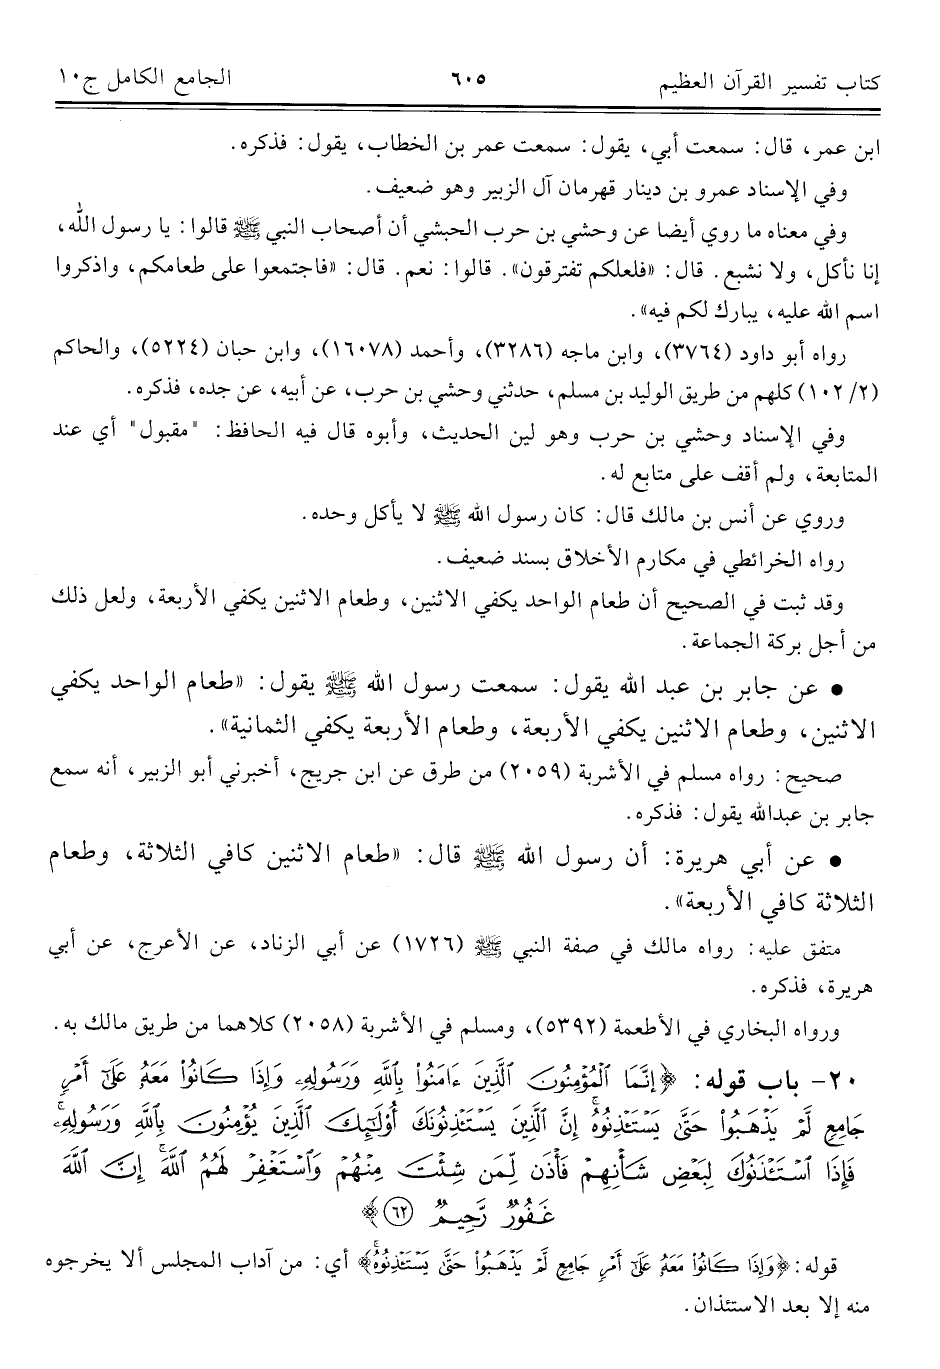 كتاب تفسير القرآن العظيم ٦٠٥ الجامع الكامل ج١٠
ابن عمر، قال: سمعت أبي، يقول: سمعت عمر بن الخطاب، يقول: فذكره.
وفي الإسناد عمرو بن دينار قهرمان آل الزبير وهو ضعيف.
وفي معناه ما روي أيضا عن وحشي بن حرب الحبشي أن أصحاب النبي ﷺ قالوا: يا رسول الله،
إنا نأكل، ولا نشبع. قال: «فلعلكم تفترقون». قالوا: نعم. قال: «فاجتمعوا على طعامكم، واذكروا
اسم الله عليه، يبارك لكم فيه».
رواه أبو داود (٣٧٦٤)، وابن ماجه (٣٢٨٦)، وأحمد (١٦٠٧٨)، وابن حبان (٥٢٢٤)، والحاكم
(٢/ ١٠٢) كلهم من طريق الوليد بن مسلم، حدثني وحشي بن حرب، عن أبيه، عن جده، فذكره.
وفي الإسناد وحشي بن حرب وهو لين الحديث، وأبوه قال فيه الحافظ: "مقبول" أي عند
المتابعة، ولم أقف على متابع له.
وروي عن أنس بن مالك قال: كان رسول الله ﷺ لا يأكل وحده.
رواه الخرائطي في مكارم الأخلاق بسند ضعيف.
وقد ثبت في الصحيح أن طعام الواحد يكفي الاثنين، وطعام الاثنين يكفي الأربعة، ولعل ذلك
من أجل بركة الجماعة.
● عن جابر بن عبد الله يقول: سمعت رسول الله ﷺ يقول: «طعام الواحد يكفي
الاثنين، وطعام الاثنين يكفي الأربعة، وطعام الأربعة يكفي الثمانية».
صحيح: رواه مسلم في الأشربة (٢٠٥٩) من طرق عن ابن جريج، أخبرني أبو الزبير، أنه سمع
جابر بن عبدالله يقول: فذكره.
● عن أبي هريرة: أن رسول الله ﷺ قال: «طعام الاثنين كافي الثلاثة، وطعام
الثلاثة كافي الأربعة».
متفق عليه: رواه مالك في صفة النبي ﷺ (١٧٢٦) عن أبي الزناد، عن الأعرج، عن أبي
هريرة، فذكره.
ورواه البخاري في الأطعمة (٥٣٩٢)، ومسلم في الأشربة (٢٠٥٨) كلاهما من طريق مالك به.
٢٠- باب قوله: ﴿إِنَّمَا الْمُؤْمِنُونَ الَّذِينَ ءَامَنُوا۟ بِاللَّهِ وَرَسُولِهِۦ وَإِذَا كَانُوا۟ مَعَهُۥ عَلَىٰٓ أَمْرٍ
جَامِعٍ لَّمْ يَذْهَبُوا۟ حَتَّىٰ يَسْتَـْٔذِنُوهُ ۚ إِنَّ الَّذِينَ يَسْتَـْٔذِنُونَكَ أُو۟لَـٰٓئِكَ الَّذِينَ يُؤْمِنُونَ بِاللَّهِ وَرَسُولِهِۦ ۚ
فَإِذَا اسْتَـْٔذَنُوكَ لِبَعْضِ شَأْنِهِمْ فَأْذَن لِّمَن شِئْتَ مِنْهُمْ وَاسْتَغْفِرْ لَهُمُ اللَّهَ ۚ إِنَّ اللَّهَ
غَفُورٌ رَّحِيمٌ ٦٢﴾
قوله: ﴿وَإِذَا كَانُوا۟ مَعَهُۥ عَلَىٰٓ أَمْرٍ جَامِعٍ لَّمْ يَذْهَبُوا۟ حَتَّىٰ يَسْتَـْٔذِنُوهُ ۚ﴾ أي: من آداب المجلس ألا يخرجوه
منه إلا بعد الاستئذان.